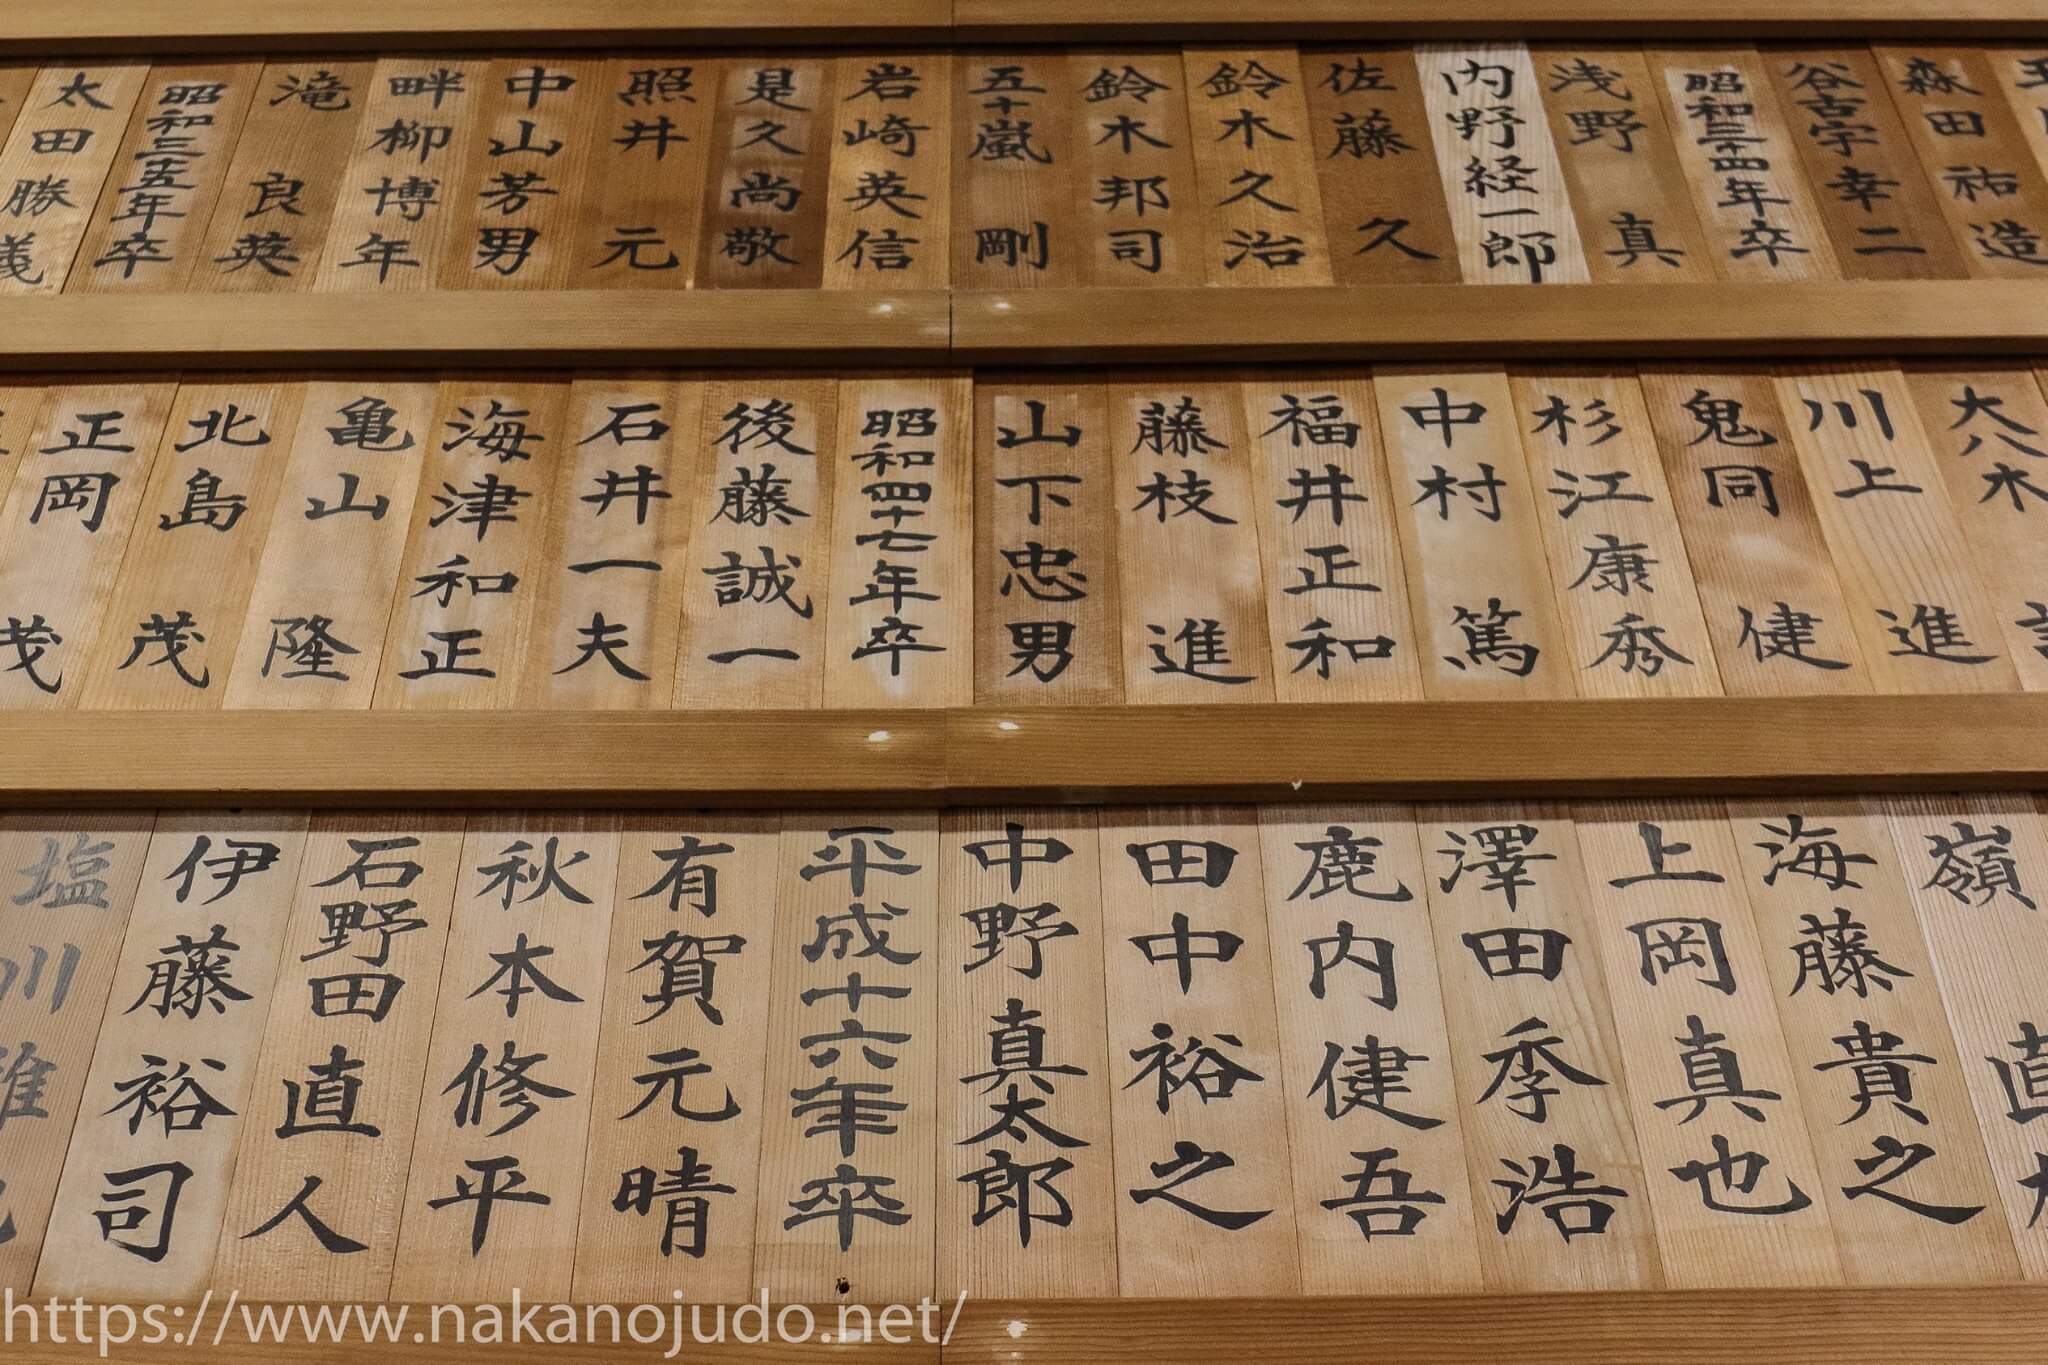 森田祐造
谷古宇幸二
昭和三十四年卒
浅野真
内野経一郎
佐藤久
鈴木久治
鈴木邦司
五十嵐剛
岩崎英信
是久尚敬
照井元
中山芳男
畔柳博年
滝良英
昭和三十五年卒
太田勝義
大八木
川上進
鬼同健
杉江康秀
中村篤
福井正和
藤枝進
山下忠男
昭和四十七年卒
後藤誠一
石井一夫
海津和正
亀山隆
北島茂
正岡
茂
嶺直
海藤貴之
上岡真也
澤田季浩
鹿内健吾
田中裕之
中野真太郎
平成十六年卒
有賀元晴
秋本修平
石野田直人
伊藤裕司
塩川雅
https://www.nakanojudo.net/